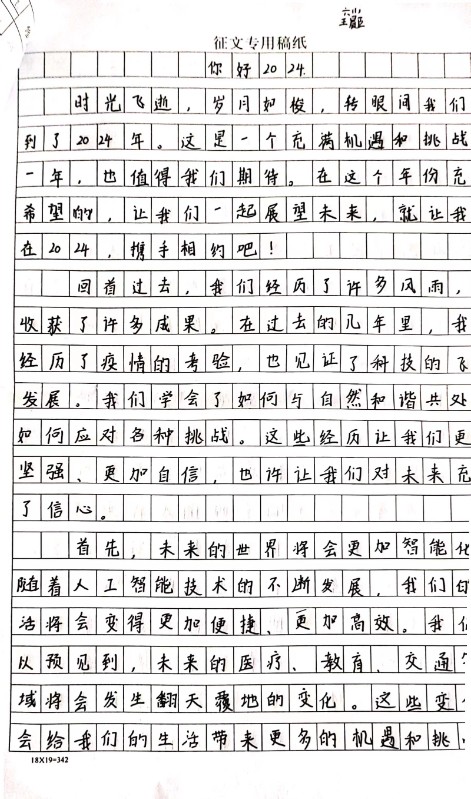 征文专用稿纸
你好2024.
时光飞逝，岁月如梭，转眼间我们
到了2024年。这是一个充满机遇和挑战
一年，也值得我们期待。在这个年份充
希望的，让我们一起展望未来，就让我
在2024，携手相约吧！
回首过去，我们经历了许多风雨，
收获了许多成果。在过去的几年里，我
经历了疫情的考验，也见证了科技的飞
发展。我们学会了如何与自然和谐共处
如何应对各种挑战。这些经历让我们更
坚强、更加自信，也许让我们对未来充
了信心。
首先，未来的世界将会更加智能化
随着人工智能技术的不断发展，我们的
活将会变得更加便捷、更加高效。我们
以预见到，未来的医疗、教育、交通
域将会发生翻天覆地的变化。这些变
会给我们的生活带来更多的机遇和挑
18X19=342